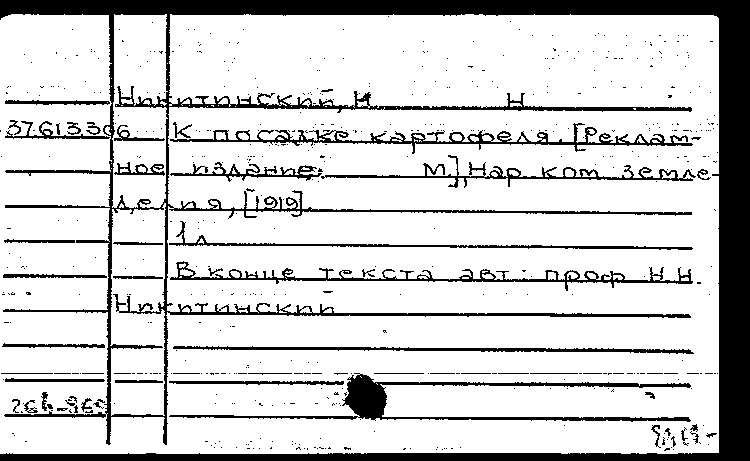 Никитинский, Н Н
37.613.306 К посадке картофеля. [Реклам-
ное издание. М.], Нар. ком. земле-
делия, [1919].
1 л.
В конце текста авт.: проф. Н.Н.
Никитинский
264-869